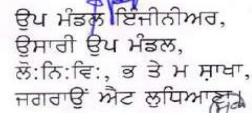 ਉਪ ਮੰਡਲ ਇੰਜੀਨੀਅਰ,
ਉਸਾਰੀ ਉਪ ਮੰਡਲ,
ਲੋ:ਨਿ:ਵਿ:, ਭ ਤੇ ਮ ਸ਼ਾਖਾ,
ਜਗਰਾਉਂ ਐਟ ਲੁਧਿਆਣਾ